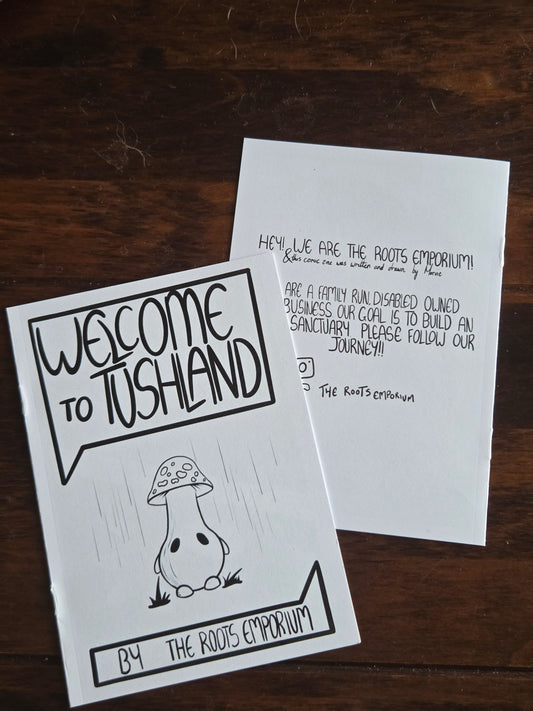 WELCOME
TO TUSHLAND
BY THE ROOTS EMPORIUM
HEY! WE ARE THE ROOTS EMPORIUM!
& this comic zine was written and drawn by
ARE A FAMILY RUN, DISABLED OWNED
BUSINESS OUR GOAL IS TO BUILD AN
SANCTUARY PLEASE FOLLOW OUR
JOURNEY!!
THE ROOTS EMPORIUM